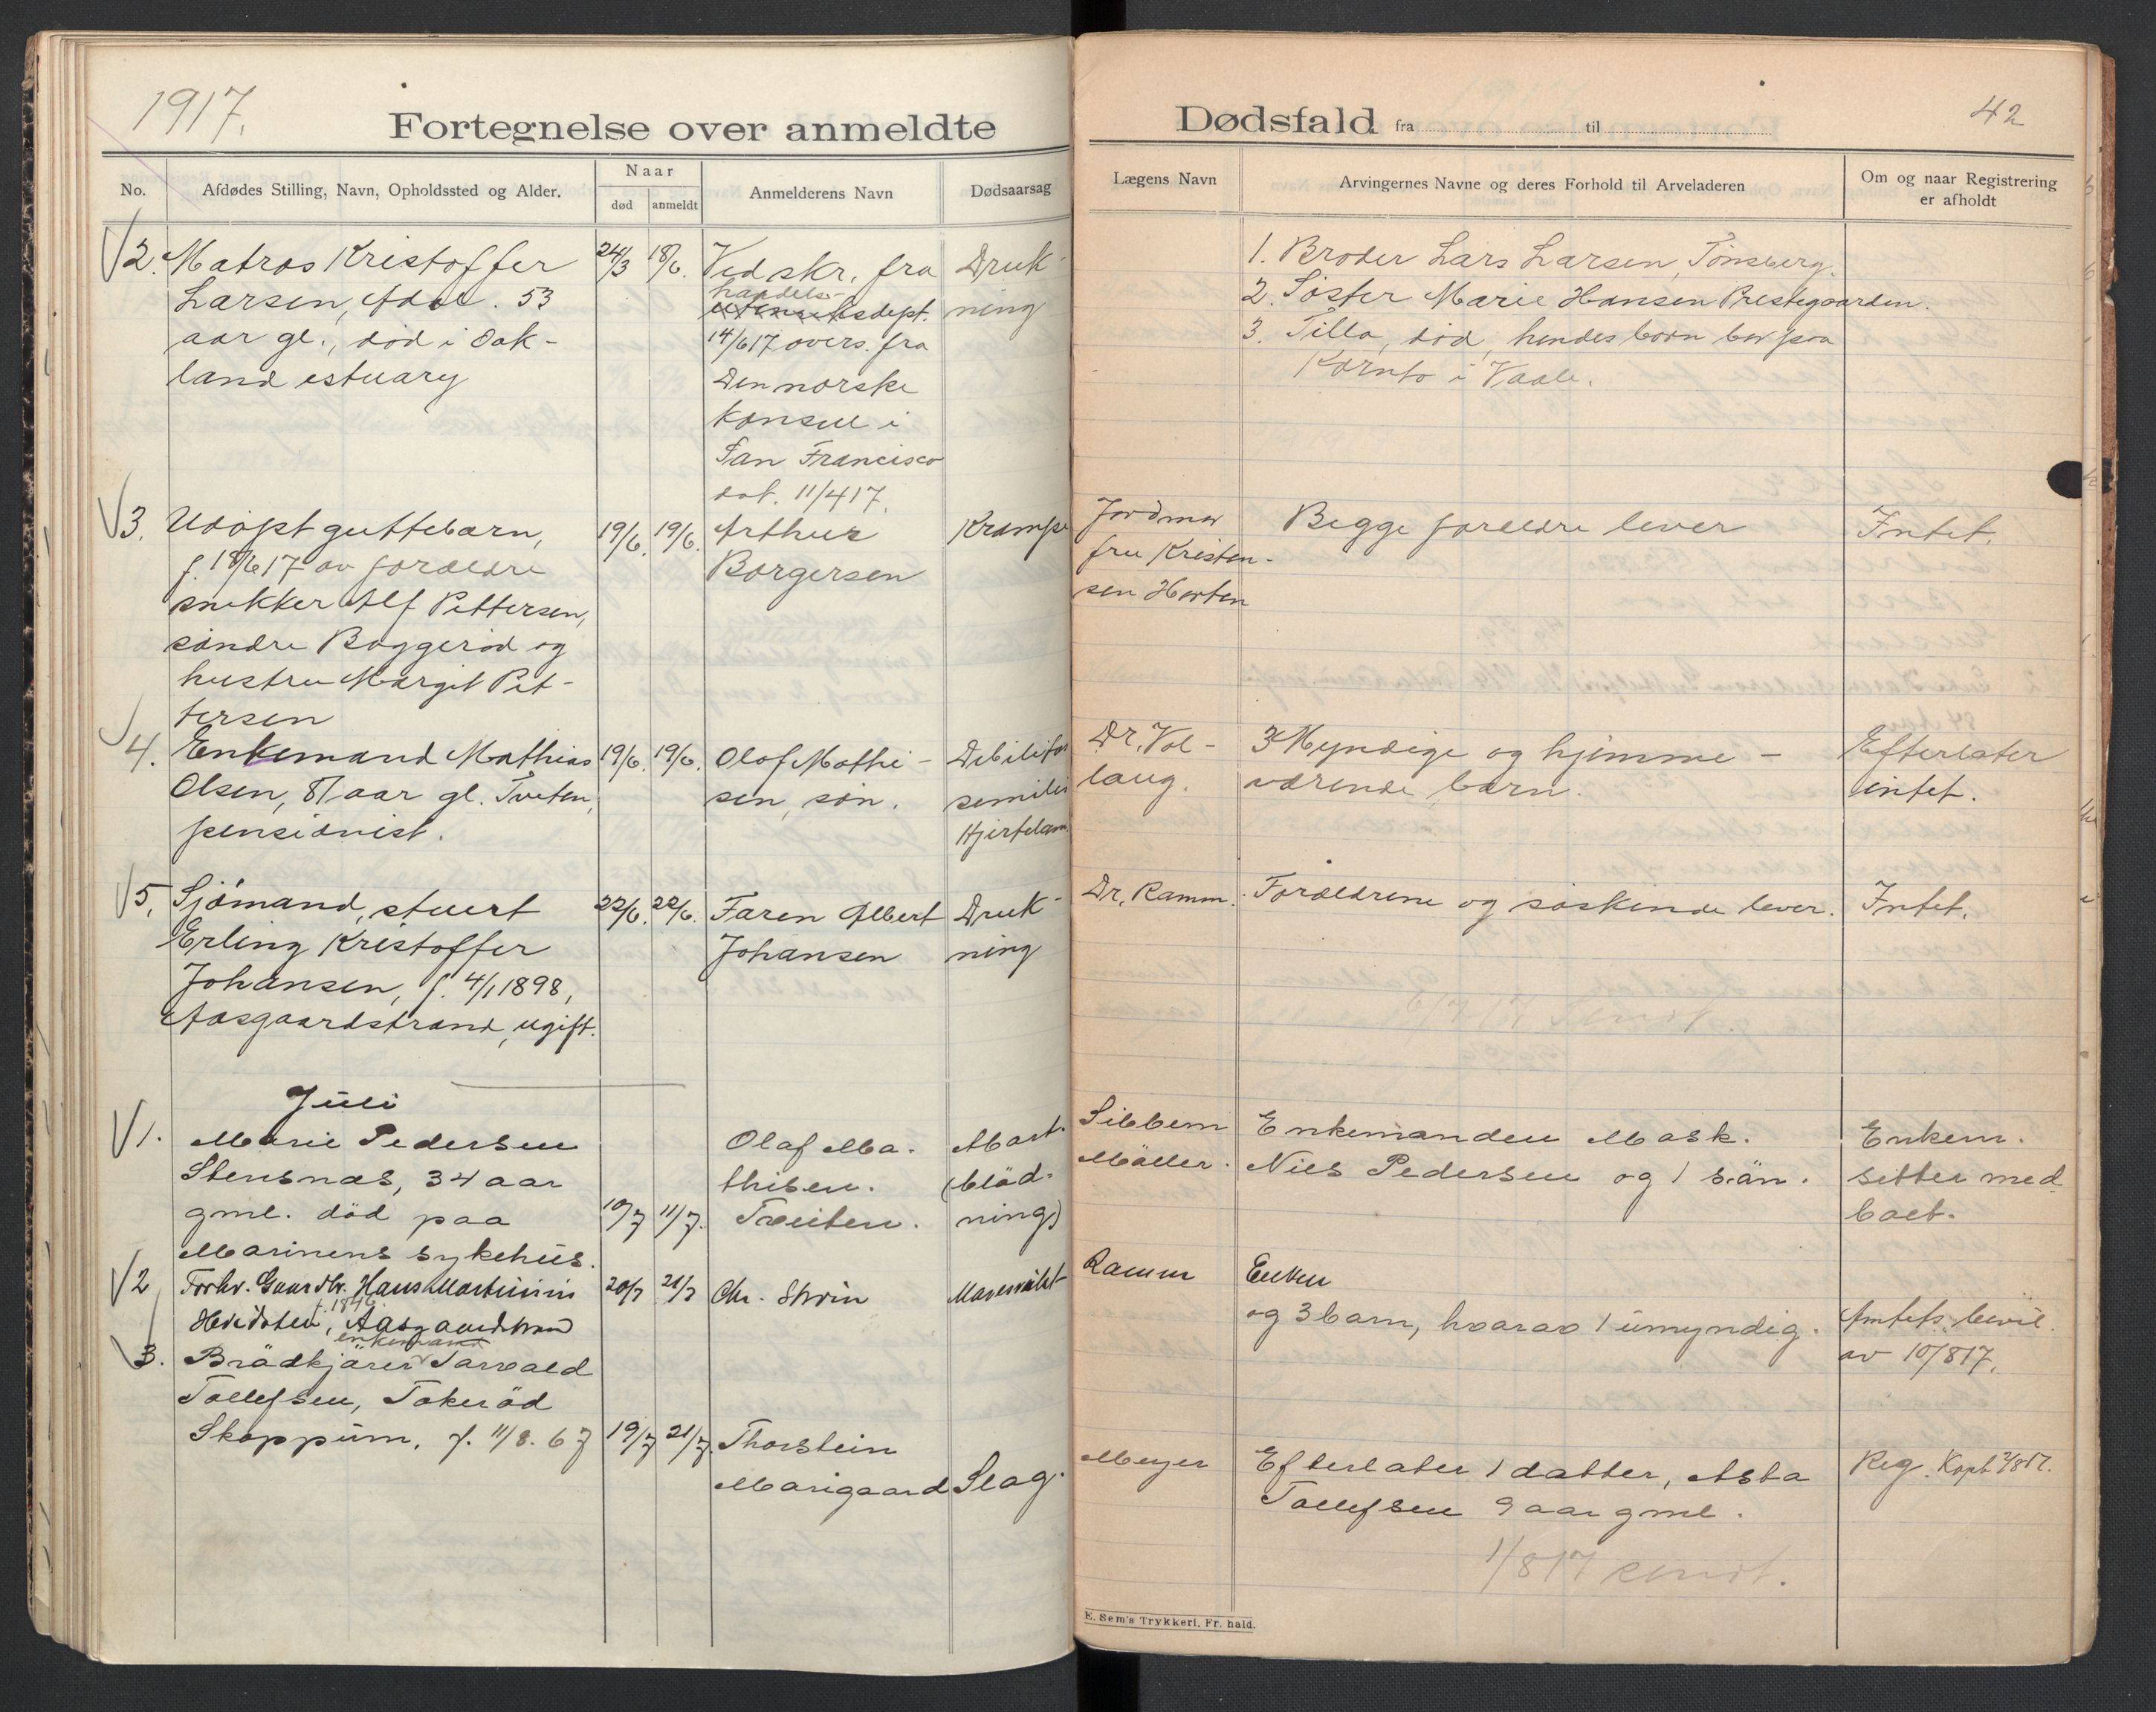 1917.
Fortegnelse over anmeldte
No.
Afdødes Stilling, Navn, Opholdssted og Alder.
Naar
død
anmeldt
Anmelderens Navn
Dødsaarsag
2. Matros Kristoffer
Larsen, Adal. 53
aar gl., död i Oak-
land estuary
24/3 18/6.
Ved skr. fra
handels-
utenriksdept.
14/6 17 overs. fra
Den norske
konsul i
San Francisco
dat. 11/4 17.
Druk-
ning
3. Udöpt guttebarn,
f. 18/6 17 av foreldre
snekker Alf Pettersen,
söndre Boggeröd og
hustru Margit Pet-
tersen
19/6. 19/6.
Arthur
Borgersen
Krampe
4. Enkemand Mathias
Olsen, 87 aar gl. Tveten,
pensionist.
19/6. 19/6.
Olaf Mathi-
sen, sön.
Debilitas
senilis
Hjertelam.
5. Sjömand, stuert
Erling Kristoffer
Johansen, f. 4/1 1898,
Aasgaardstrand, ugift.
22/6. 22/6.
Faren Albert
Johansen
Druk-
ning
Juli
1. Marie Pedersen
Stensnæs, 34 aar
gml. död paa
Marinens sykehus.
10/7 11/7.
Olaf Ma-
thisen.
Tveiten.
(blöd-
ning)
2 Forhv. Gaardbr. Hans Martinius
f. 1846
Hvidsten, Aasgaardstrand
20/7 21/7
Chr. Ström
3. Brödkjörer Torvald
enkemand
Tollefsen, Tokeröd
Skoppum, f. 11/8. 67
19/7 21/7.
Thorstein
Morigaard
Slag.
Dødsfald fra til
42
Lægens Navn
Arvingernes Navne og deres Forhold til Arveladeren
Om og naar Registrering
er afholdt
1. Broder Lars Larsen, Tönsberg.
2. Söster Marie Hansen Prestegaarden.
3. Tilla, död, hendes börn bor paa
i Vaale.
Jordmor
fru Kristen-
sen Horten
Begge foreldre lever
Intet.
Dr. Vol-
laug.
3 Myndige og hjemme-
værende barn.
Efterlater
intet.
Dr. Ramm.
Foreldrene og söskende lever.
Intet.
Sibbern
Möller.
Enkemanden Mask.
Nils Pedersen og 1 sön.
Enkem.
sitter med
boet.
Ramm
Enken
og 3 barn, hvorav 1 umyndig.
Amtets bevil.
av 10/8 17.
Meyer
Efterlater 1 datter, Asta
Tollefsen 9 aar gml.
Reg. Kapt 2/8 17.
1/8 17 sendt.
E. Sem's Trykkeri, Fr. hald.